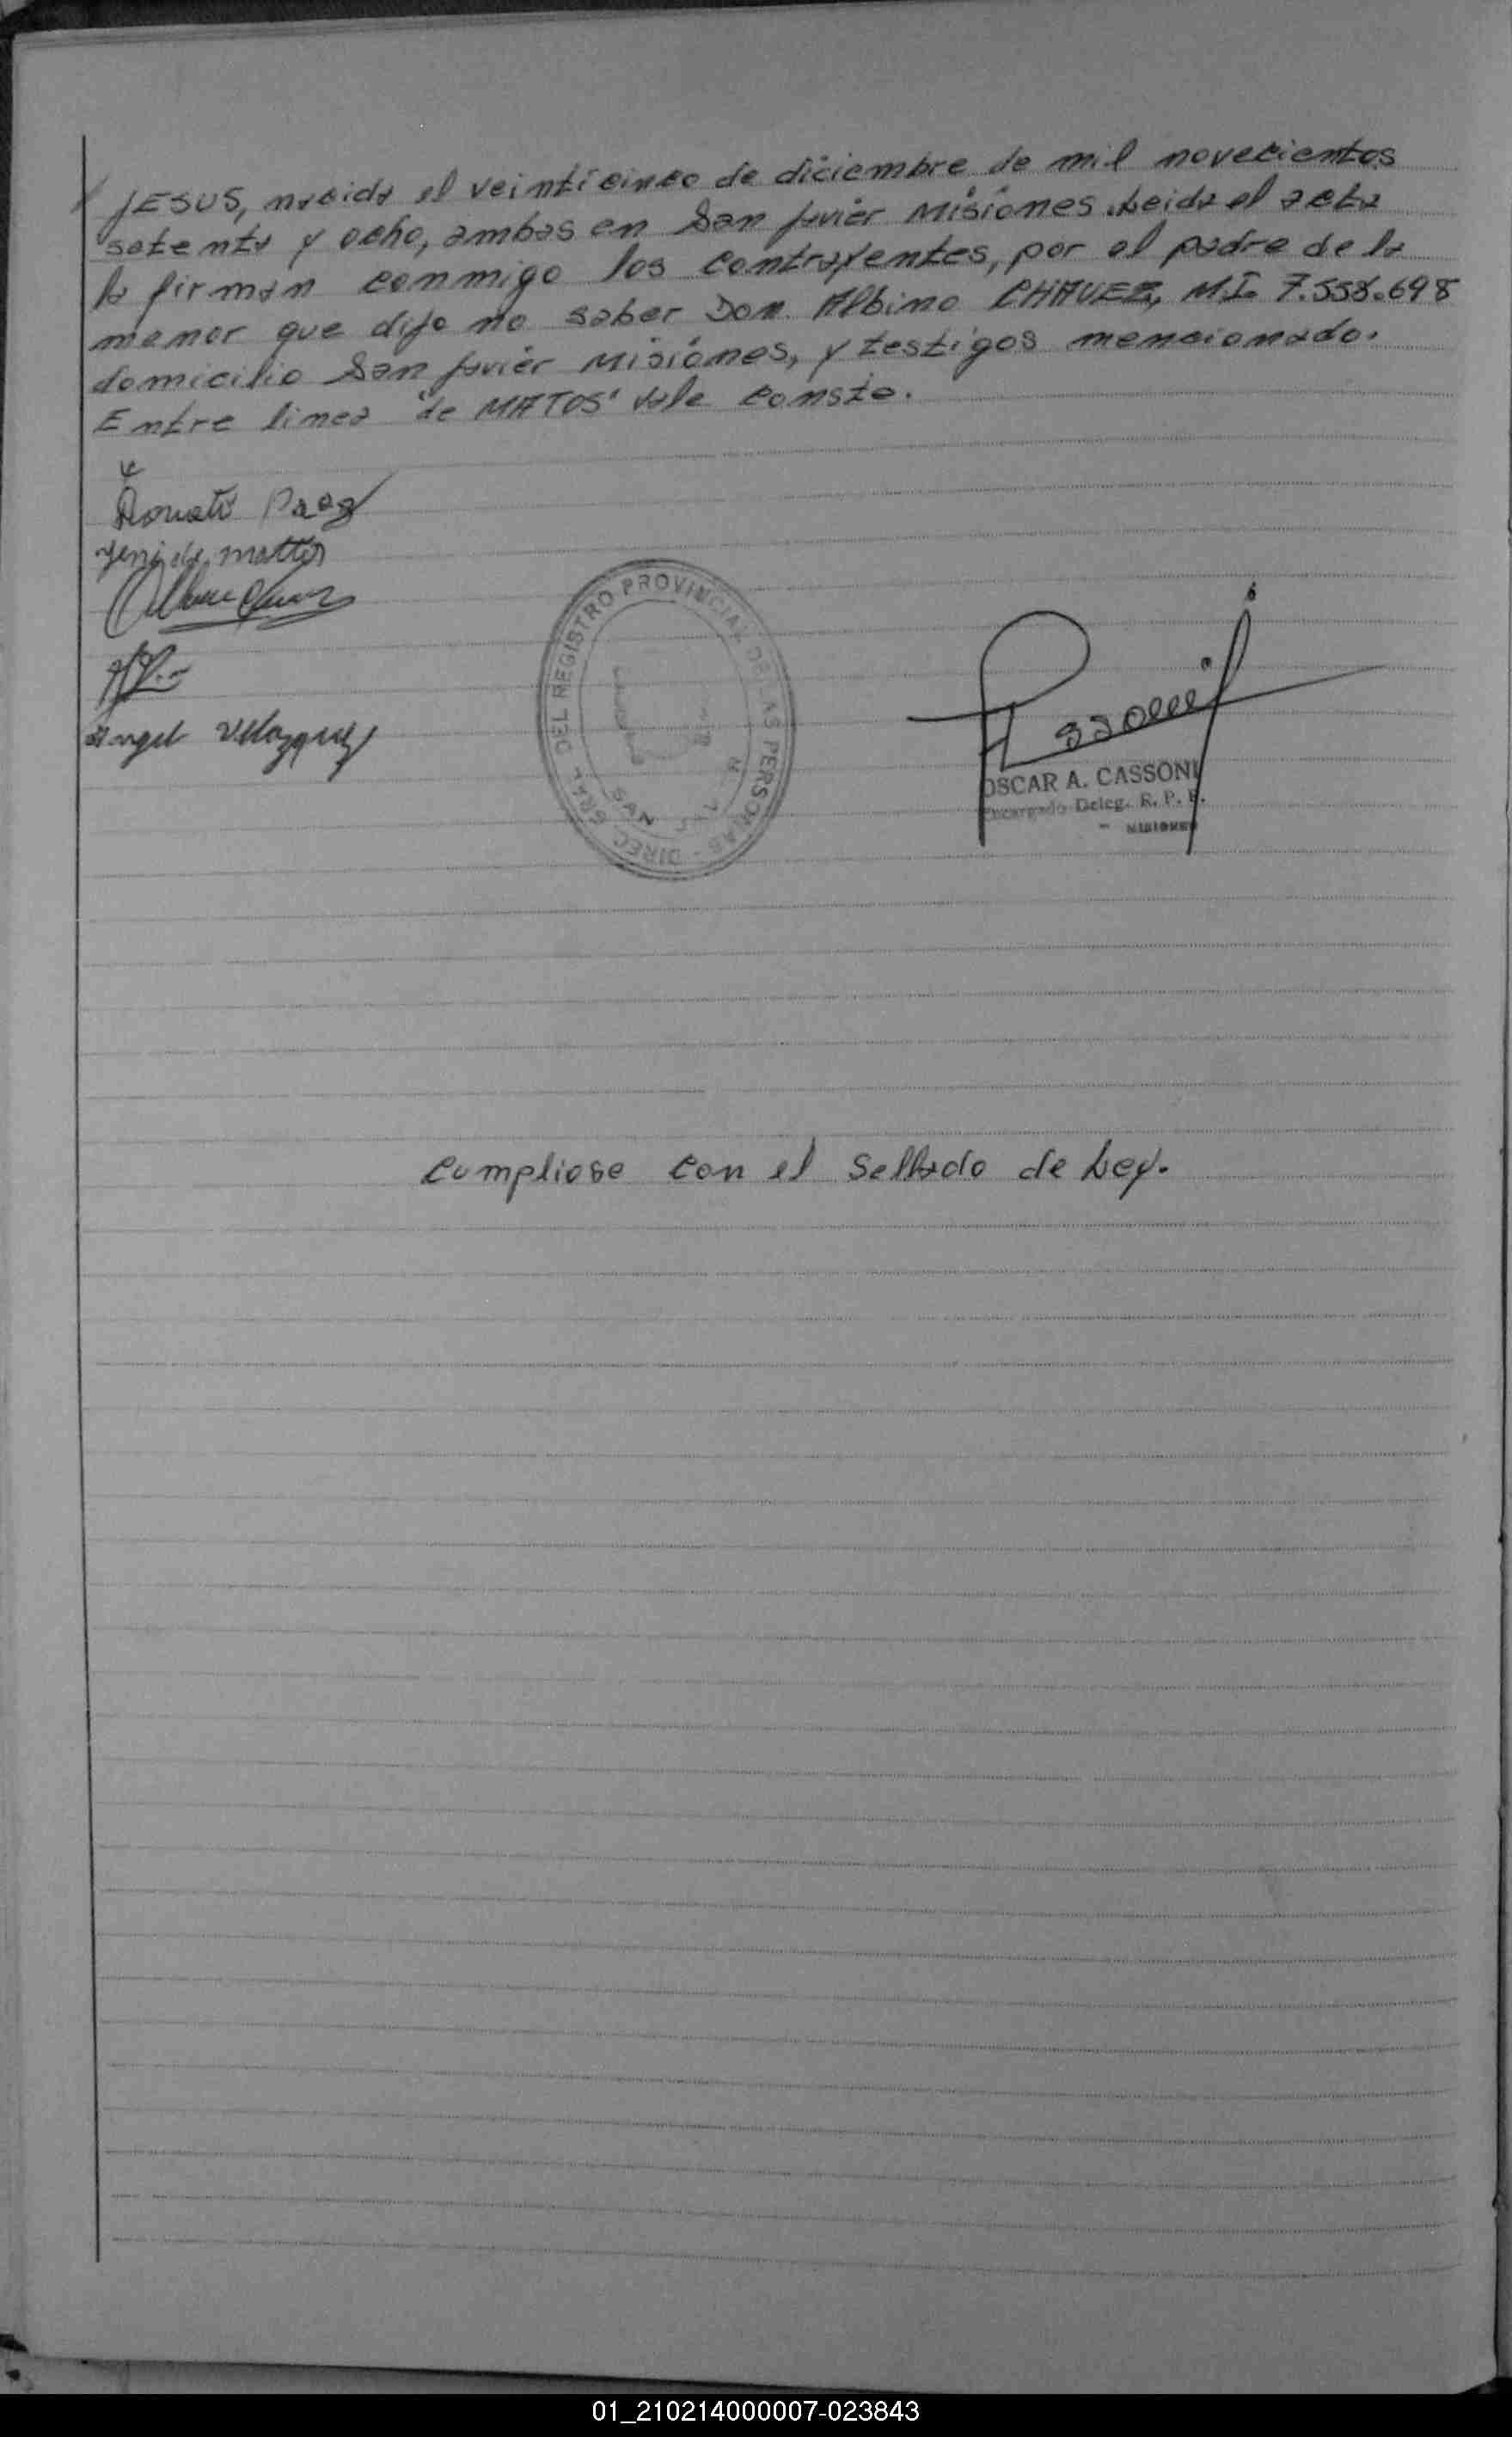 JESUS, nacida el veinticinco de diciembre de mil novecientos
setenta y ocho, ambas en San Javier Misiones. Leida el acta
la firman conmmigo los contrayentes, por el padre de la
menor que dijo no saber Don. Albino CHAVEZ, M.I. 7.558.698
domicilio San Javier Misiones, y testigos mencionado.
Entre linea "de MATOS" vale conste.
Donato Paez
yeni de mattos
Angel Velazquez
DIREC. GRAL. DEL REGISTRO PROVINCIAL DE LAS PERSONAS
SAN
OSCAR A. CASSONI
Encargado Deleg. R. P. P.
MISIONES
Cumpliose con el Sellado de Ley.
01_210214000007-023843